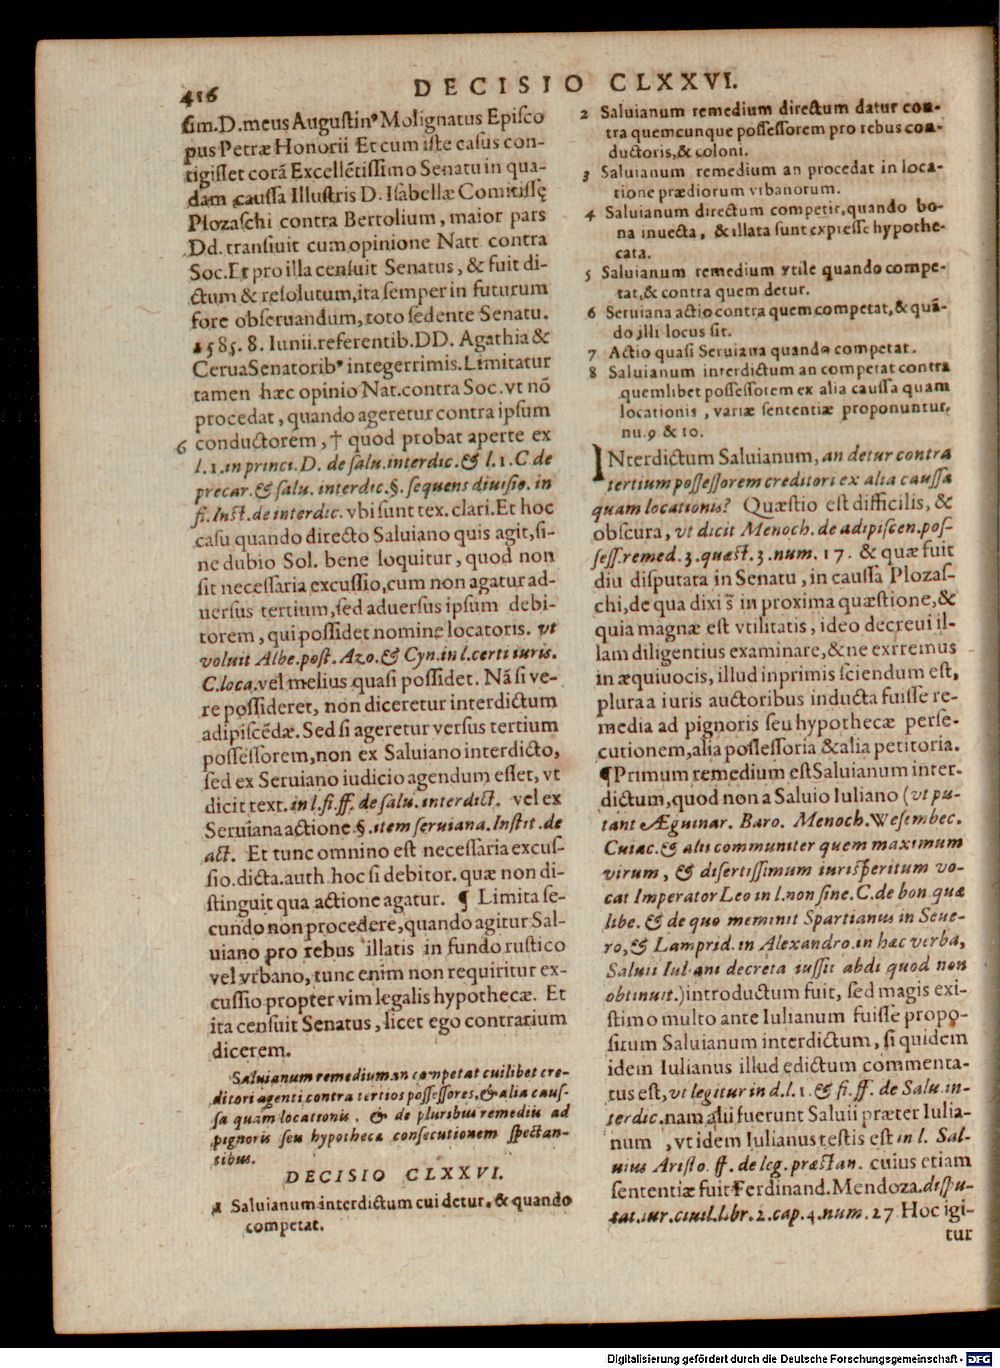 416
DECISIO CLXXVI.
sim.D.meus Augustinꝰ Molignatus Episco
pus Petræ Honorii Et cum iste casus con-
tigisset corã Excellẽtissimo Senatu in qua-
dam caussa Illustris D. Isabellæ Comitissę
Plozaschi contra Bertolium, maior pars
Dd. transiuit cum opinione Natt contra
Soc.Et pro illa censuit Senatus, & fuit di-
ctum & resolutum,ita semper in futurum
fore obseruandum, toto sedente Senatu.
1585. 8. Iunii.referentib.DD. Agathia &
Cerua Senatoribꝰ integerrimis.Limitatur
tamen hæc opinio Nat.contra Soc.vt nõ
procedat, quando ageretur contra ipsum
6 conductorem, † quod probat aperte ex
l.1.in princi.D. de salu.interdic.& l.1.C de
precar.& salu. interdic.§. sequens diuisio. in
fi.Inst.de interdic. vbi sunt tex. clari.Et hoc
casu quando directo Saluiano quis agit,si-
ne dubio Sol. bene loquitur, quod non
sit necessaria excussio,cum non agatur ad-
uersus tertium,sed aduersus ipsum debi-
torem, qui possidet nomine locatoris. vt
voluit Albe.post. Azo.& Cyn.in l.certi iuris.
C.loca.vel melius quasi possidet. Nã si ve-
re possideret, non diceretur interdictum
adipiscẽdæ. Sed si ageretur versus tertium
possessorem,non ex Saluiano interdicto,
sed ex Seruiano iudicio agendum esset, vt
dicit text. in l.fi.ff. de salu. interdict. vel ex
Seruiana actione §.item seruiana.Instit.de
act. Et tunc omnino est necessaria excus-
sio.dicta.auth hoc si debitor. quæ non di-
stinguit qua actione agatur. ¶ Limita se-
cundo non procedere,quando agitur Sal-
uiano pro rebus illatis in fundo rustico
vel vrbano, tunc enim non requiritur ex-
cussio propter vim legalis hypothecæ. Et
ita censuit Senatus, licet ego contrarium
dicerem.
Saluianum remedium an competat cuilibet cre-
ditori agenti contra tertios possessores,& alia caus-
sa quàm locationis, & de pluribus remediis ad
pignoris seu hypotheca consecutionem spectan-
tibus.
DECISIO CLXXVI.
1 Saluianum interdictum cui detur, & quando
competat.
2 Saluianum remedium directum datur con-
tra quemcunque possessorem pro rebus con-
ductoris,& coloni.
3 Saluianum remedium an procedat in loca-
tione prædiorum vrbanorum.
4 Saluianum directum competit,quando bo-
na inuecta, & illata sunt expresse hypothe-
cata.
5 Saluianum remedium vtile quando compe-
tat,& contra quem detur.
6 Seruiana actio contra quem competat,& quã-
do illi locus sit.
7 Actio quasi Seruiana quando competat.
8 Saluianum interdictum an competat contra
quemlibet possessorem ex alia caussa quam
locationis, variæ sententiæ proponuntur,
nu.9 & 10.
INterdictum Saluianum, an detur contra
tertium possessorem creditori ex alia caussa
quam locationis? Quæstio est difficilis, &
obscura, vt dicit Menoch. de adipiscen.pos-
sess.remed.3.quæst.3.num.17. & quæ fuit
diu disputata in Senatu, in caussa Plozas-
chi,de qua dixi s̃ in proxima quæstione,&
quia magnæ est vtilitatis, ideo decreui il-
lam diligentius examinare,& ne exrremus
in æquiuocis, illud inprimis sciendum est,
plura a iuris auctoribus inducta fuisse re-
media ad pignoris seu hypothecæ perse-
cutionem,alia possessoria & alia petitoria.
¶Primum remedium est Saluianum inter-
dictum,quod non a Saluio Iuliano (vt pu-
tant Æguinar. Baro. Menoch. Wesembec.
Cuiac.& alii communiter quem maximum
virum, & disertissimum iurisperitum vo-
cat Imperator Leo in l.non sine.C.de bon.quæ
libe. & de quo meminit Spartianus in Seue-
ro,& Lamprid.in Alexandro.in hæc verba,
Saluii Iuliani decreta iussit abdi quod non
obtinuit.)introductum fuit, sed magis exi-
stimo multo ante Iulianum fuisse propo-
situm Saluianum interdictum, si quidem
idem Iulianus illud edictum commenta-
tus est,vt legitur in d.l.1.& fi.ff. de Salu.in-
terdic.nam alii fuerunt Saluii præter Iulia-
num ,vt idem Iulianus testis est in l. Sal-
uius Aristo. ff. de leg.præstan. cuius etiam
sententiæ fuit Ferdinand.Mendoza.dispu-
tat.iur.ciuil.libr.2.cap.4.num.27 Hoc igi-
tur
Digitalisierung gefördert durch die Deutsche Forschungsgemeinschaft - DFG